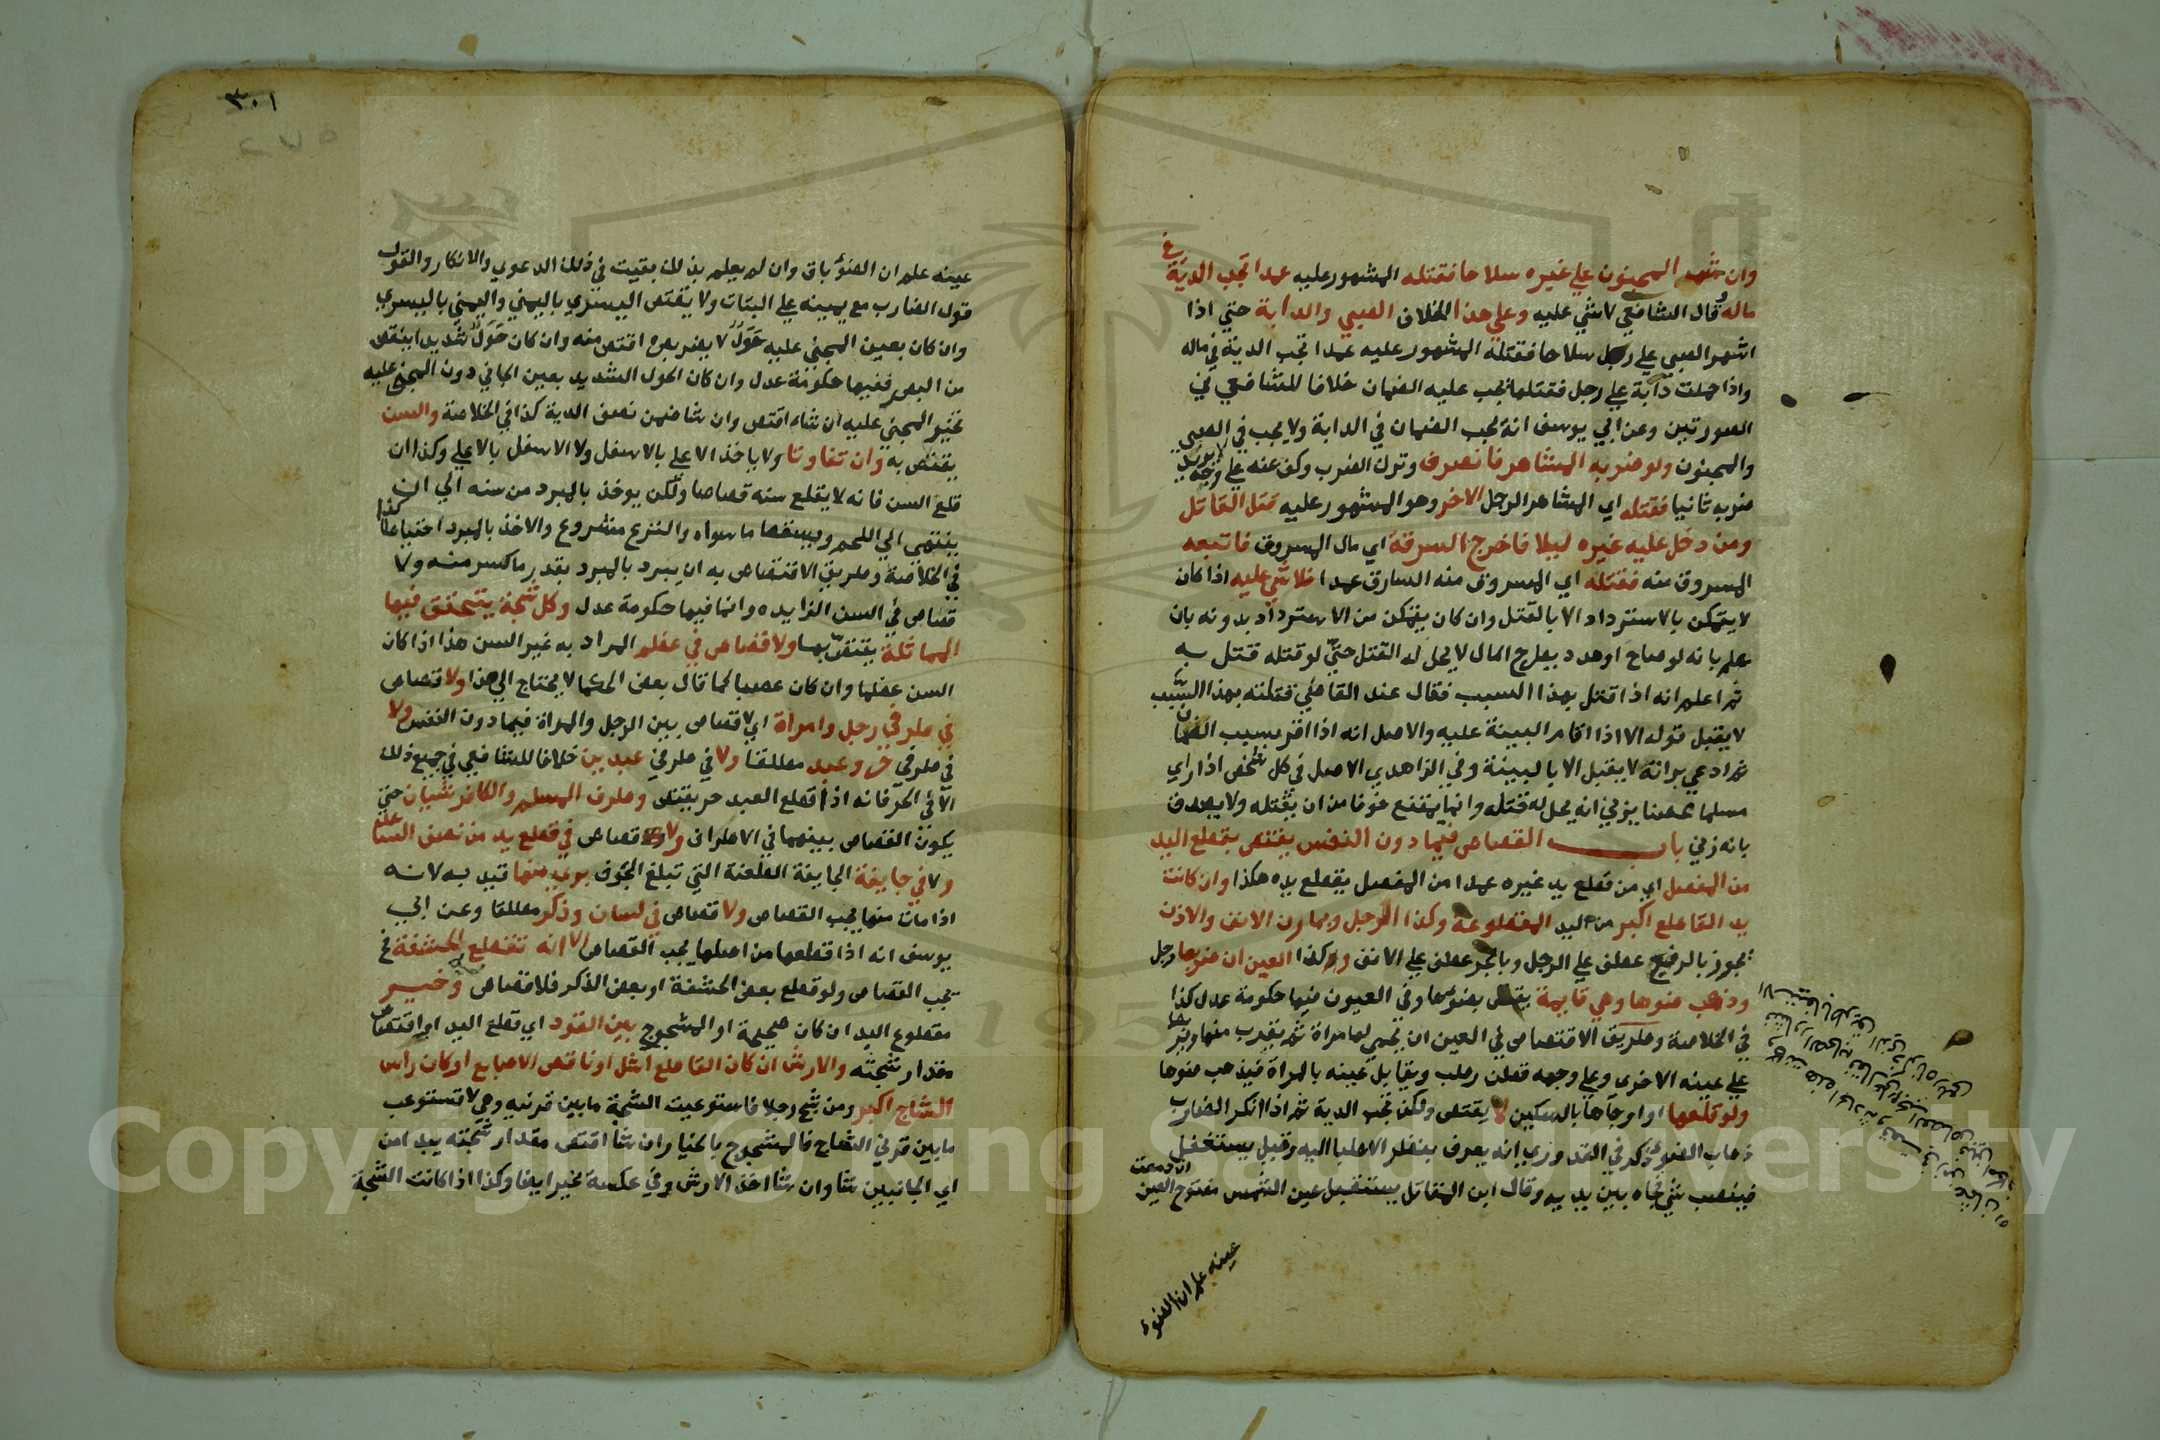 وان شهر المجنون علي غيره سلاحا فقتله المشهور عليه عمدا تجب الدية في
ماله وقال الشافعي لا شي عليه وعلي هذا الخلاف الصبي والدابة حتي اذا
اشهر الصبي علي رجل سلاحا فقتله المشهور عليه عمدا تجب الدية في ماله
واذا حملت دابة علي رجل فقتلها يجب عليه الضمان خلافا للشافعي في
الصورتين وعن ابي يوسف انه يجب الضمان في الدابة ولا يجب في الصبي
والمجنون ولو ضربه الشاهر فانصرف وترك الضرب وكف عنه علي وجه لا يريد
ضربه ثانيا فقتله اي الشاهر الرجل الاخر وهو المشهور عليه قتل القاتل
ومن دخل عليه غيره ليلا فاخرج السرقة اي مال المسروق فاتبعه
المسروق منه فقتله اي المسروق منه السارق عمدا فلا شي عليه اذا كان
لا يتمكن بالاسترداد الا بالقتل وان كان يتمكن من الاسترداد بدونه بان
علم بانه لو صاح او هدد يطرح المال لا يحل له القتل حتي لو قتله قتل به
ثم اعلم انه اذا قتل بهذا السبب فقال عند القاضي قتلته بهذا السبب
لا يقبل قوله الا اذا اقام البينة عليه والاصل انه اذا اقر بسبب الضمان
ثم ادعي براته لا يقبل الا بالبينة وفي الزاهدي الاصل في كل شخص اذا راي
مسلما محصنا يزني انه يحل له قتله وانما يمتنع خوفا من ان يقتله ولا يصدق
بانه زني باب القصاص فيما دون النفس يقتص بقطع اليد
من المفصل اي من قطع يد غيره عمدا من المفصل يقطع يده هكذا وان كانت
يد القاطع اكبر من اليد المقطوعة وكذا الرجل ومارن الانف والاذن
يجوز بالرفع عطف علي الرجل وبالجر عطف علي الانف وكذا العين ان ضربها رجل
وذهب ضوها وهي قايمة يقتص بضوئها وفي العيون فيها حكومة عدل كذا
في الخلاصة وطريق الاقتصاص في العين ان يحمي لها مراة ثم يقرب منها ويربط
علي عينه الاخري وعلي وجهه قطن رطب ويقابل عينه بالمراة فيذهب ضوها
ولو قلعها او اوجاها بالسكين لا يقتص ولكن تجب الدية ثم اذا انكر الضارب
ذهاب الضوء ذكر في القدوري انه يعرف بنظر الاطبا اليه وقيل يستغفل
فينصب شي تجاه بين يديه وقال ابن المقاتل يستقبل عين الشمس مفتوح العين ان دمعت
عينه علم ان الضوء
عينه علم ان الضوء باق وان لم يعلم بذلك بقيت في ذلك الدعوي والانكار والقول
قول الضارب مع يمينه علي البتات ولا يقتص اليسري باليمني واليمني باليسري
وان كان بعين المجني عليه حول لا يضر بصره اقتص منه وان كان حول شديد ابنقص
من البصر ففيها حكومة عدل وان كان الحول الشديد بعين الجاني دون المجني عليه
تخير المجني عليه ان شاء اقتص وان شا ضمن نصف الدية كذا في الخلاصة والسن
يقتص به وان تفاوتا ولا ياخذ الاعلي بالاسفل ولا الاسفل بالاعلي وكذا ان
قلع السن فانه لا يقلع سنه قصاصا ولكن يوخذ بالمبرد من سنه الي ان
ينتهي الي اللحم ويسقط ما سواه والنزع مشروع والاخذ بالمبرد احتياطا كذا
في الخلاصة وطريق الاقتصاص به ان يبرد بالمبرد بقدر ما كسر منه ولا
قصاص في السن الزايده وانما فيها حكومة عدل وكل شجة يتحقق فيها
المماثلة يقتص بها ولا قصاص في عظم المراد به غير السن هذا اذا كان
السن عظما وان كان عصبا كما قال بعض الحكما لا يحتاج الي هذا ولا قصاص
في طرفي رجل وامراة اي لا قصاص بين الرجل والمراة فيما دون النفس ولا
في طرفي حر وعبد مطلقا ولا في طرفي عبدين خلافا للشافعي في جميع ذلك
الا في الحر فانه اذا قطع العبد حر يقتص وطرف المسلم والكافر سيان حتي
يكون القصاص بينهما في الاطراف ولا قصاص في قطع يد من نصف الساعد
ولا في جايفة الجايفة الطعنة التي تبلغ الجوف برى منها قيد به لانه
اذا مات منها يجب القصاص ولا قصاص في لسان وذكر مطلقا وعن ابي
يوسف انه اذا قطعها من اصلها يجب القصاص الا انه تقطع الحشفة فح
يجب القصاص ولو قطع بعض الحشفة او بعض الذكر فلا قصاص وخير
مقطوع اليد ان كان صحيحة او المشجوج بين القود اي قطع اليد او اقتصاص
مقدار شجته والارش ان كان القاطع اشل او ناقص الاصابع او كان راس
الشاج اكبر ومن شج رجلا فاستوعبت الشجة ما بين قرنيه وهي لا تستوعب
ما بين قرني الشاج فالمشجوج بالخيار ان شا اقتص مقدار شجته يبدا من
اي الجانبين شا وان شا اخذ الارش وفي عكسه تخير ايضا وكذا اذا كانت الشجة
٣٠١